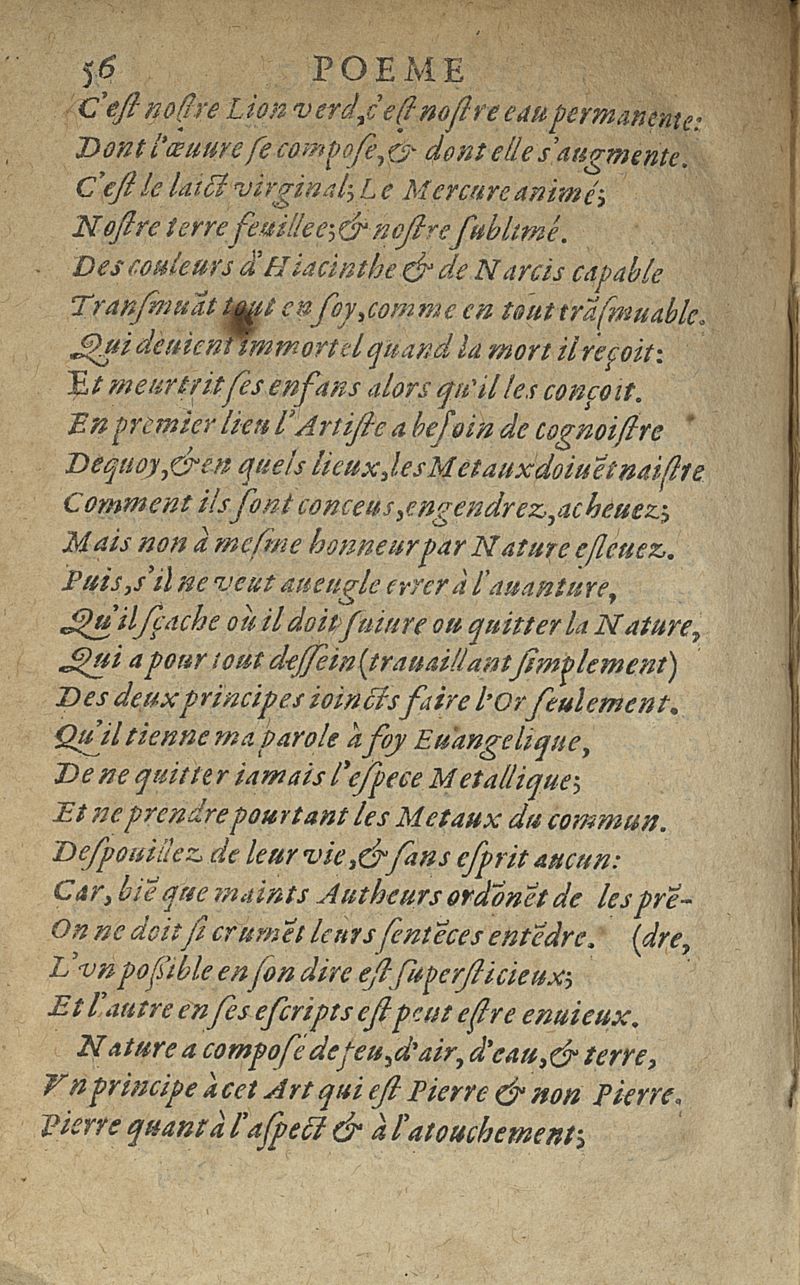 56 POEME
C'eſt noſtre Lion verd, c'eſt noſtre eau permanente:
Dont l'œuure ſe compoſe, & dont elle s'augmente.
C'eſt le laict virginal; Le Mercure animé;
Noſtre terre feuillee; & noſtre ſublimé.
Des couleurs d'Hiacinthe & de Narcis capable
Tranſmuãt tout en ſoy, comme en tout trãſmuable.
Qui deuient immortel quand la mort il reçoit:
Et meurtrit ſes enfans alors qu'il les conçoit.
En premier lieu l'Artiſte a beſoin de cognoiſtre
Dequoy, & en quels lieux, les Metaux doiuẽt naiſtre
Comment ils ſont conceus, engendrez, acheuez;
Mais non à meſme honneur par Nature eſleuez.
Puis, s'il ne veut aueugle errer à l'auanture,
Qu'il ſçache où il doit ſuiure ou quitter la Nature,
Qui a pour tout deſſein (trauaillant ſimplement)
Des deux principes ioincts faire l'Or ſeulement.
Qu'il tienne ma parole à foy Euangelique,
De ne quitter iamais l'eſpece Metallique;
Et ne prendre pourtant les Metaux du commun.
Deſpouillez de leur vie, & ſans eſprit aucun:
Car, biẽ que maints Autheurs ordõnẽt de les prẽ-
On ne doit ſi crumẽt leurs ſentẽces entẽdre. (dre,
L'vn poſſible en ſon dire eſt ſuperſticieux;
Et l'autre en ſes eſcripts eſt peut eſtre enuieux.
Nature a compoſé de feu, d'air, d'eau, & terre,
Vn principe à cet Art qui eſt Pierre & non Pierre.
Pierre quant à l'aſpect & à l'atouchement;